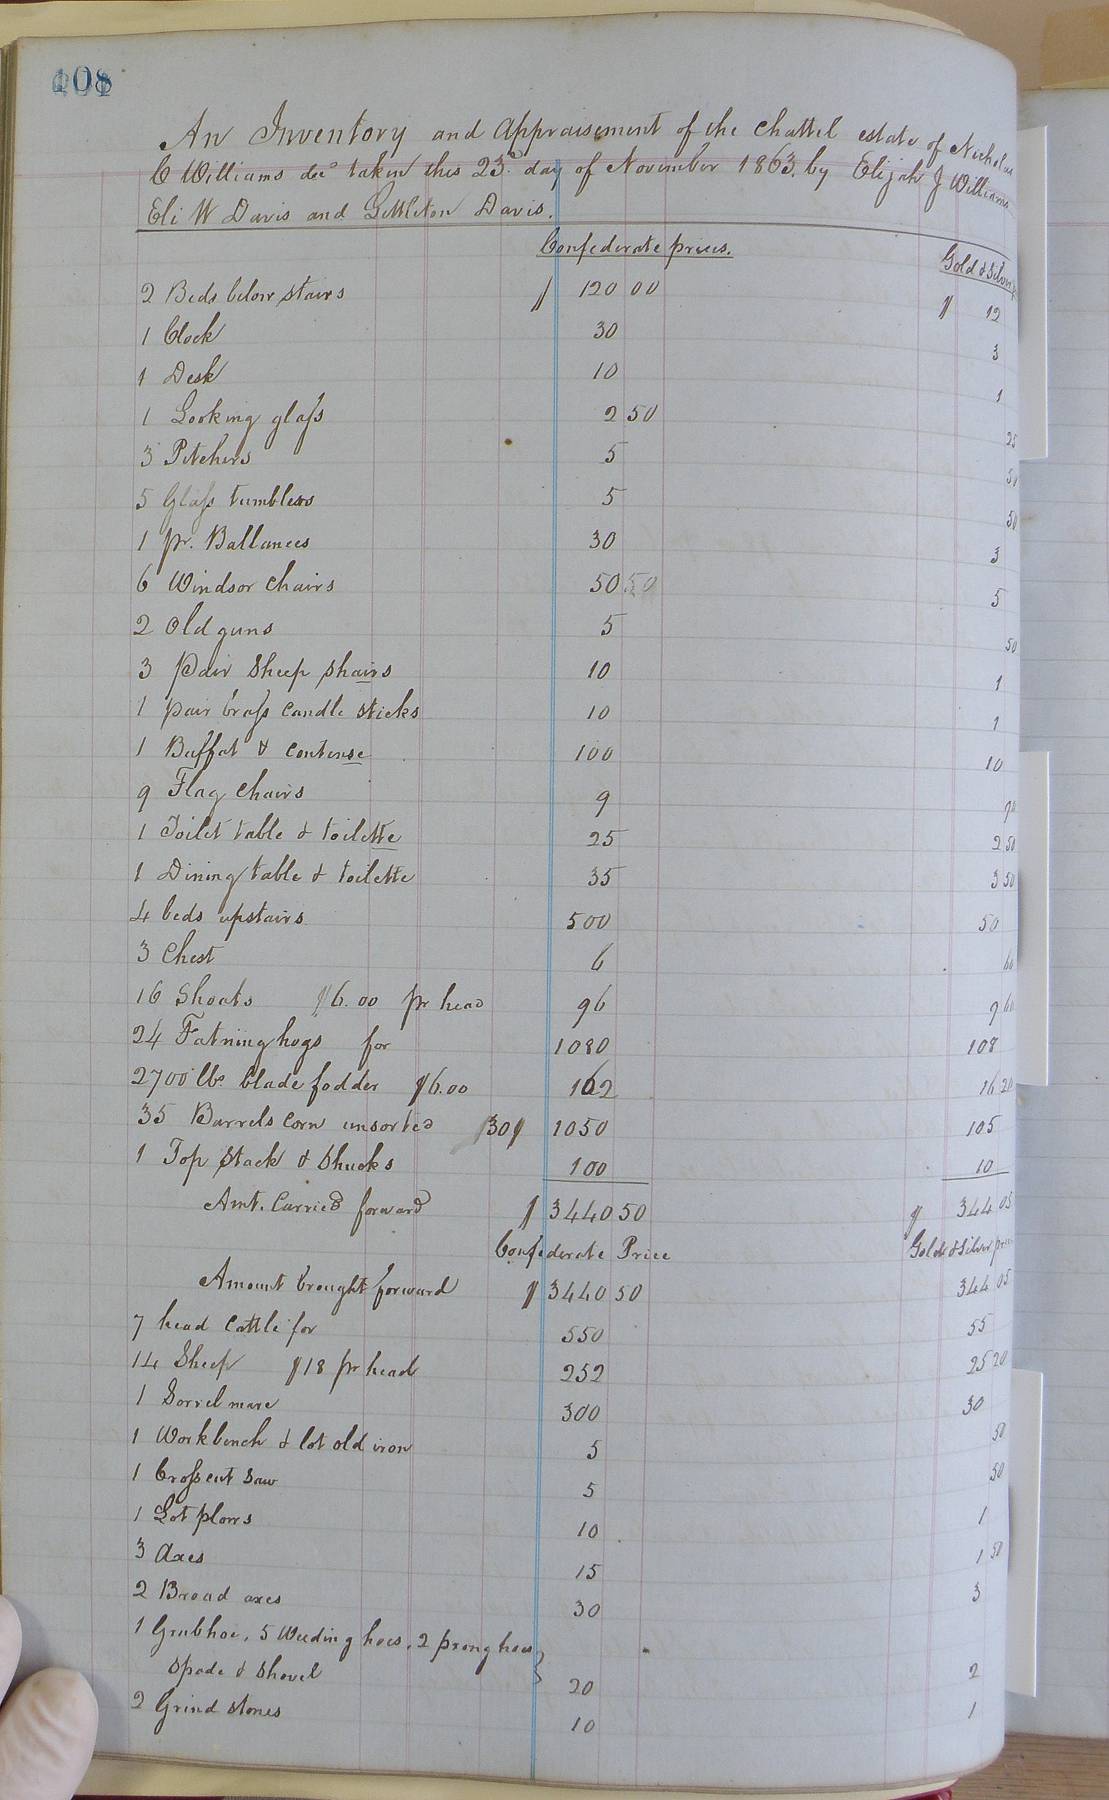 108
An Inventory and Appraisement of the Chattel estate of Nicholas
C Williams decd taken this 23d day of November 1863, by Elijah J Williams
Eli W Davis and Littleton Davis.
Confederate prices. Gold & Silver
2 Beds below stairs $ 120 00 $ 12
1 Clock 30 3
1 Desk 10 1
1 Looking glass 2 50 25
3 Pitchers 5 50
5 Glass tumblers 5 50
1 pr. Ballances 30 3
6 Windsor chairs 50 50 5
2 Old guns 5 50
3 Pair Sheep shairs 10 1
1 pair brass candle sticks 10 1
1 Buffat & contense 100 10
9 Flag chairs 9 90
1 Toilet table & toilette 25 2 50
1 Dining table & toilette 35 3 50
4 beds upstairs 500 50
3 Chest 6 60
16 Shoats $6.00 pr head 96 9 60
24 Fatning hogs for 1080 108
2700 lbs blade fodder $6.00 162 16 20
35 Barrels corn unsorted 30$ 1050 105
1 Top Stack & Shucks 100 10
Amt. Carried forward $ 3440 50 $ 344 05
Confederate Price Gold & Silver price
Amount brought forward $ 3440 50 344 05
7 head cattle for 550 55
14 Sheep $18 pr head 252 25 20
1 Sorrel mare 300 30
1 Workbench & lot old iron 5 50
1 Crosscut Saw 5 50
1 Lot plows 10 1
3 Axes 15 1 50
2 Broad axes 30 3
1 Grubhoe, 5 Weeding hoes, 2 prong hoes
Spade & Shovel 20 2
2 Grind stones 10 1